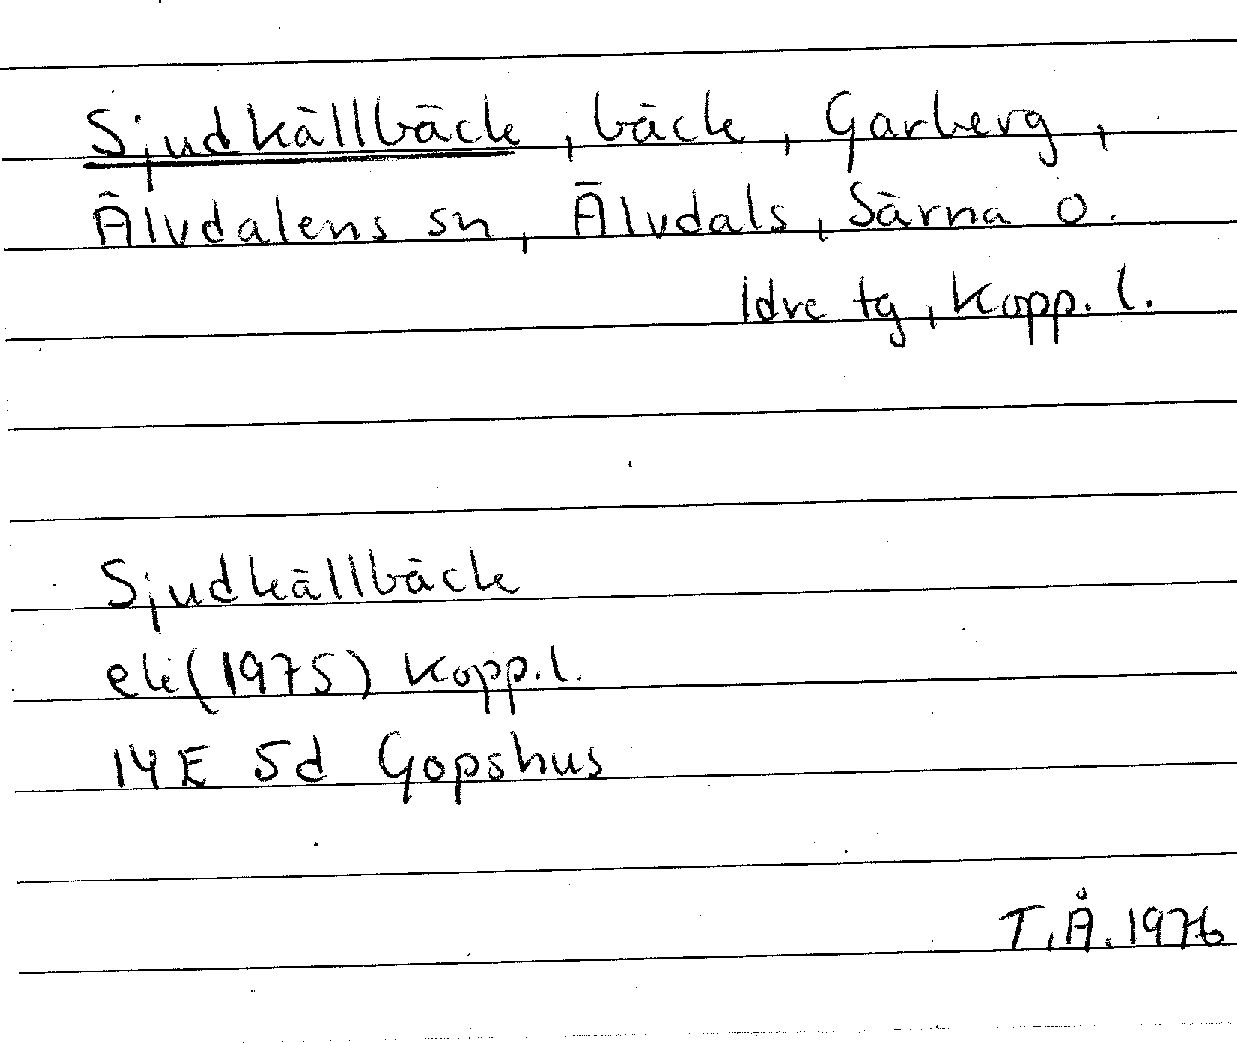 Sjudkällbäck, bäck, Garberg,
Älvdalens sn, Älvdals, Särna o.
Idre tg, Kopp. l.
Sjudkällbäck
ek (1975) Kopp. l.
14E 5d Gopshus
T.Å. 1976